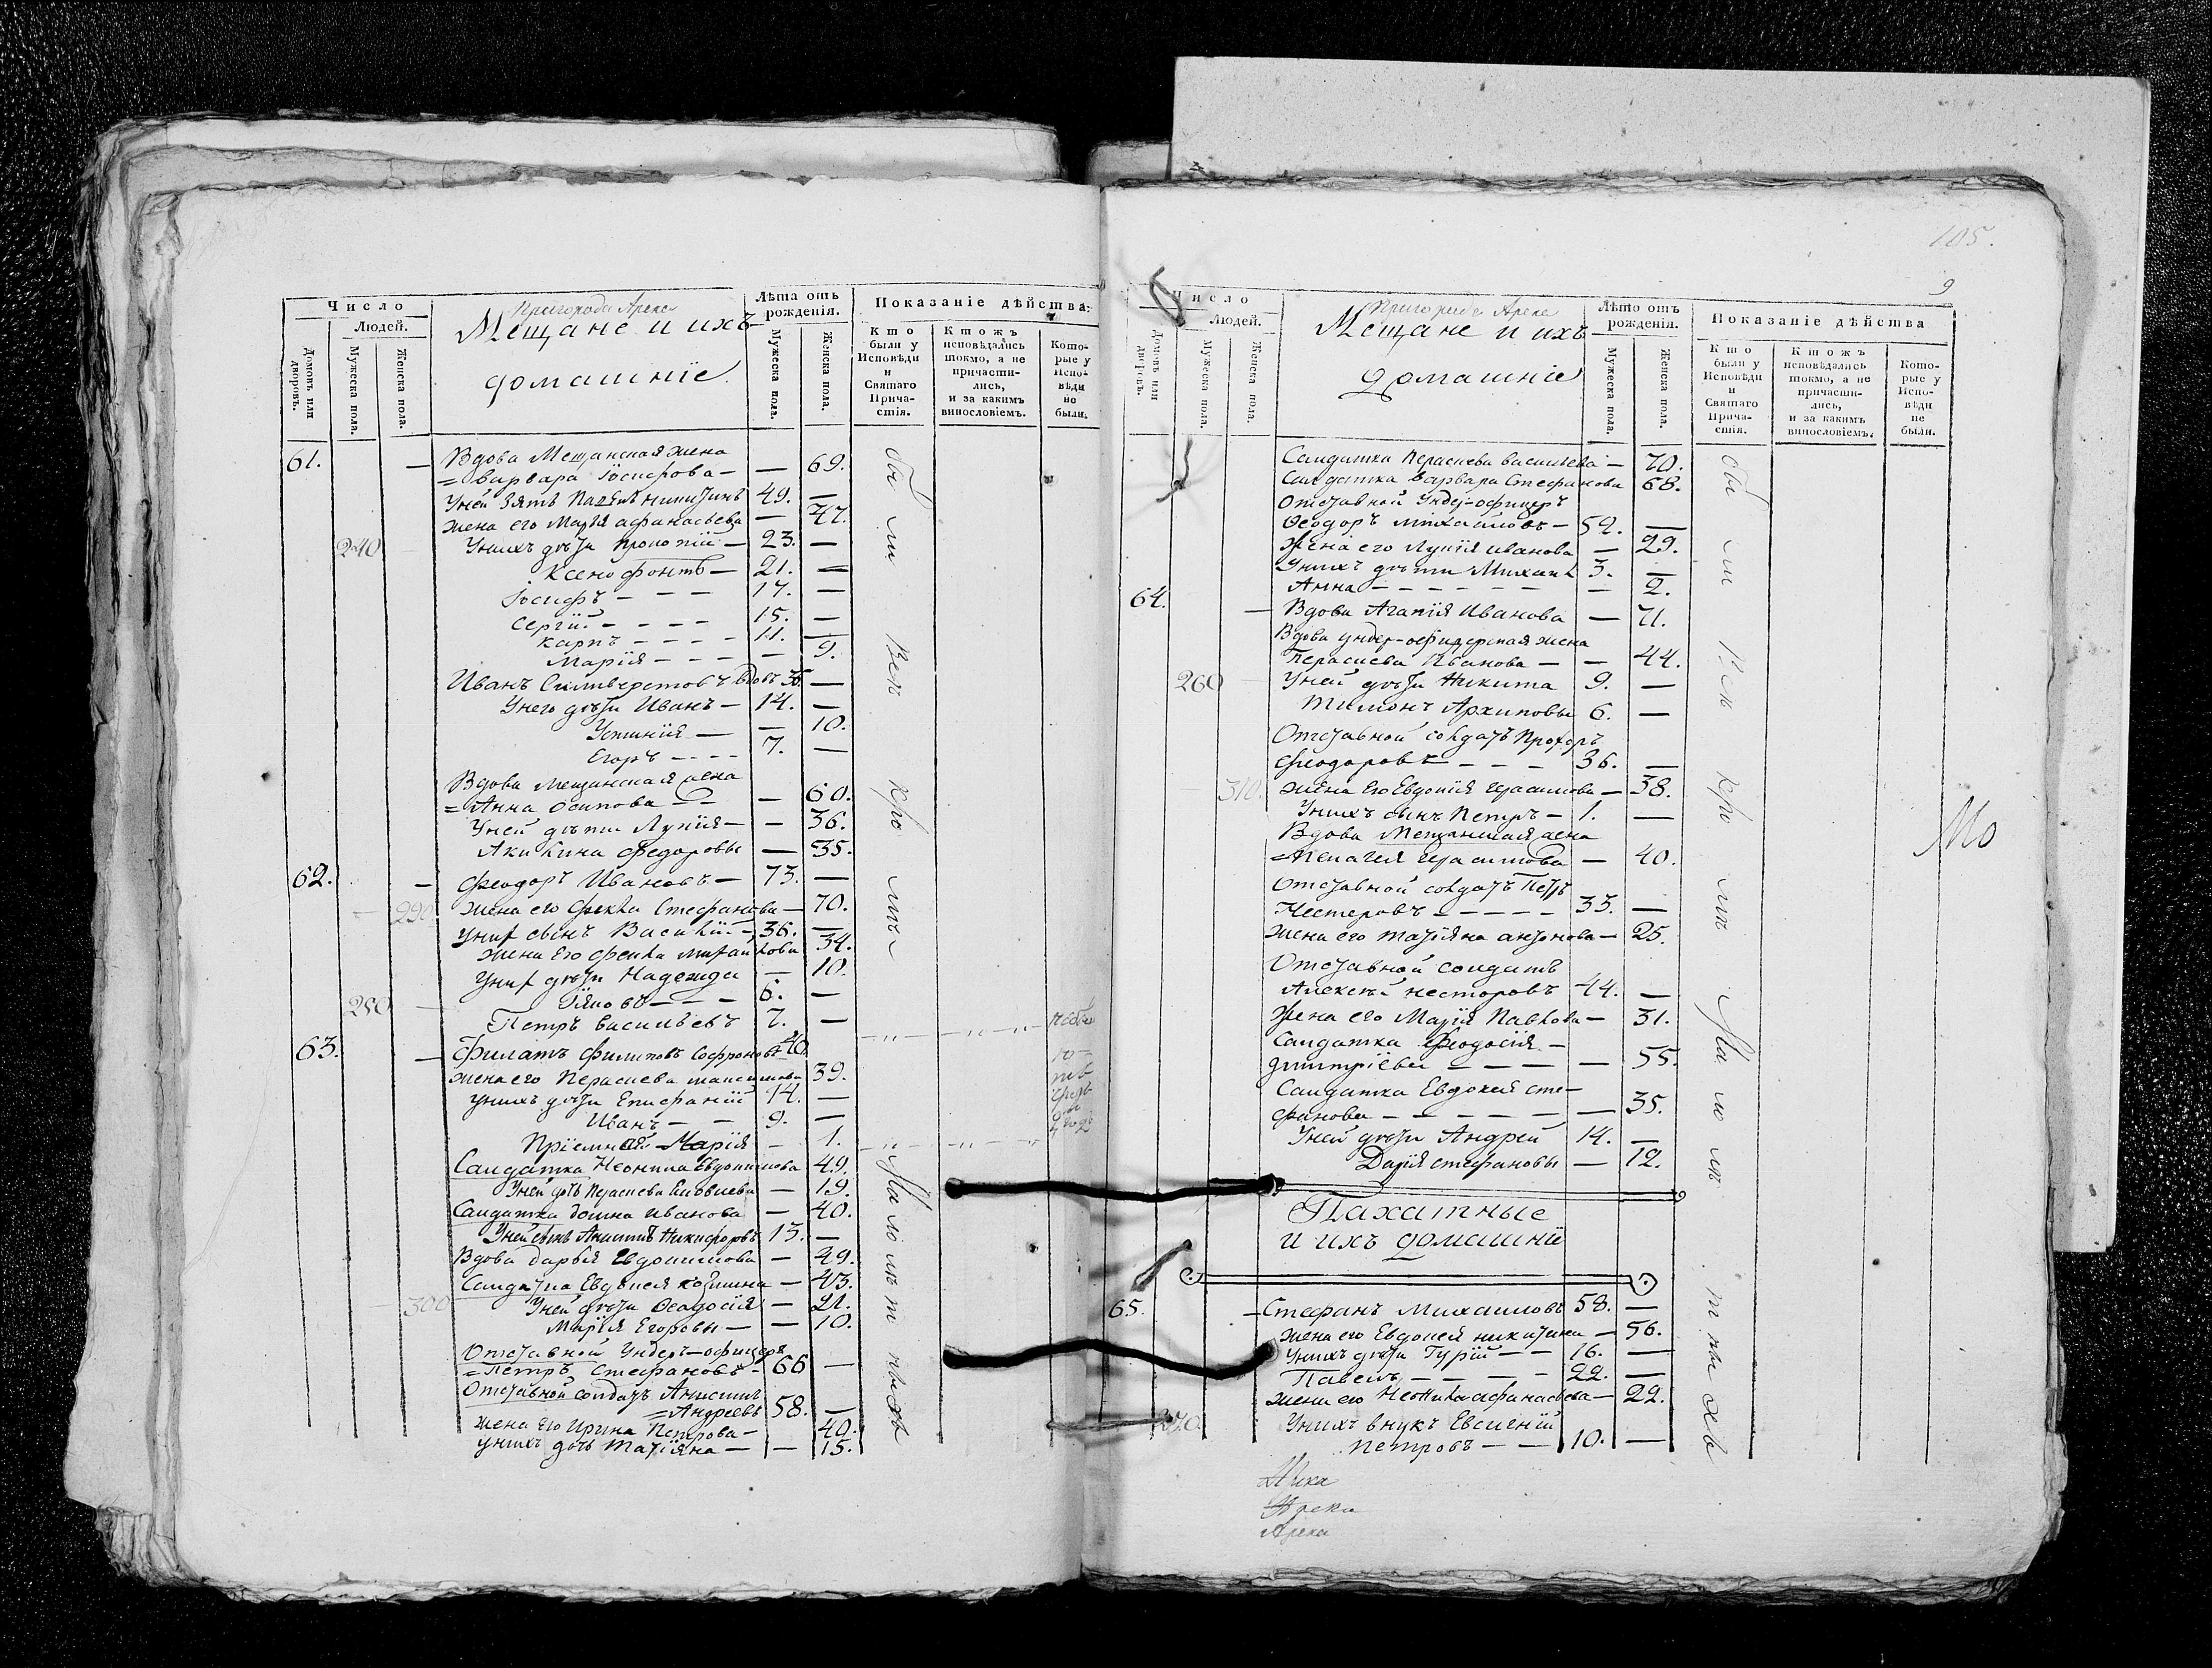 Число
Людей.
Домовъ или дворовъ.
Мужеска пола.
Женска пола.
Пригорода Арска
Мещане и ихъ
домашнїе
Лѣта отъ рожденія.
Мужеска пола.
Женска пола.
Показаніе дѣйства:
Кто были у Исповѣди и Святаго Причастія.
Ктожъ исповѣдались токмо, а не причастились, и за какимъ винословіемъ.
Которые у Исповѣди не были.
61. — Вдова Мещанская жена
=Варвара Іосифова — — 69.
Уней зять Павелъ Никитинъ 49. —
жена его Марїя Афанасьева — 47.
240 Унихъ дѣти Прокопїй — 23. —
Ксенофонтъ — 21. —
Іосифъ — — — 17. —
Сергїй — — — — 15. —
Карпъ — — — — 11. —
Марїя — — — — 9.
Иванъ Силиверстовъ вдовъ 35. —
Унего дѣти Иванъ — 14. —
Устинїя — — 10.
Егоръ — — — — 7. —
Вдова Мещанская жена
=Анна Осипова — — — 60.
Уней дѣти Лукїя — — 36.
Акилина Федоровы — 35.
62. — Феодоръ Ивановъ — 73. —
290 жена его Фекла Стефанова — 70.
Уних сынъ Василїй — 36. —
жена его Фекла Михайлова 34.
Уних дѣти Надежда — 10.
250 Іяковъ — — — 6. —
Петръ Васильевъ 7. —
63. — Филатъ Филиповъ Софроновъ 40.
жена его Параскева Максимова 39.
Унихъ дѣти Епифанїй 14. —
Иванъ — — 9. —
Прїемная Марїя — 1.
Салдатка Неонила Евдокимова 49.
Уней дочь Параскева — 19.
Салдатка Домна Иванова — 40.
Уней сынъ Никифоровъ 13. —
Вдова Дарья Евдокимова — 49.
Салдатка Евдокея Козмина — 43.
300 Уней дѣти Феодосїя — 21.
Марїя Егоровы — — 10.
Отставной Ундеръ-офицеръ
=Петръ Стефановъ — 66 —
Отставной солдатъ Анисимъ
=Андреевъ 58. —
жена его Ирина Петрова — 40.
Унихъ дочь Татїяна — — 15.
бы ли Вел кро мѣ
Ма ло лѣ т ныхъ
105.
9
Число
Людей.
Домовъ или дворовъ.
Мужеска пола.
Женска пола.
Пригорода Арска
Мещане и ихъ
домашнїе
Лѣто отъ рожденія.
Мужеска пола.
Женска пола.
Показаніе дѣйства
Кто были у Исповѣди и Святаго Причастія.
Ктожъ исповѣдались токмо, а не причастились, и за какимъ винословіемъ.
Которые у Исповѣди не были.
Салдатка Параскева Васильева — 70.
Салдатка Варвара Стефанова 68.
Отставной Ундер-офицеръ
Феодоръ Михайловъ — 52. —
Жена его Лукїя Иванова — 29.
Унихъ дѣти Михаилъ 3. —
Анна — — — — — — — 2.
64. — Вдова Агапїя Иванова — 71.
Вдова ундер-офицерская жена
Параскева Иванова — — 44.
260 Уней дѣти Никита 9. —
Тимонъ Архиповы 6. —
Отставной солдатъ Прохоръ
Феодоровъ — — — — 36. —
310. жена его Евдокїя Герасимова — 38.
Унихъ сынъ Петръ — 1. —
Вдова Мещанская жена
=Пелагея Герасимова — 40.
Отставной солдатъ Петръ
Нестеровъ — — — — — 33. —
жена его Татїяна Антонова — 25.
Отставной солдатъ
Алексѣй Несторовъ 44. —
Жена его Марїя Павлова — 31.
Салдатка Феодосїя —
Димитрїева — — — — 55.
Салдатка Евдокея Сте-
фанова — — — — — — 35.
Уней дѣти Андрей 14. —
Дарїя Стефановы — 12.
Пахатные
и ихъ домашнїи
65. — Стефанъ Михаиловъ 58. —
жена его Евдокея Никитина — 56.
Унихъ дѣти Гурїй — — 16. —
Павелъ — — — — 22. —
жена его Неонила Афанасьева — 22.
270. Унихъ внукъ Евсигнїй
Петровъ — — 10. —
бы ли Вел кро мѣ
Ма ло лѣ т ныхъ
Мо
Арска
Арска